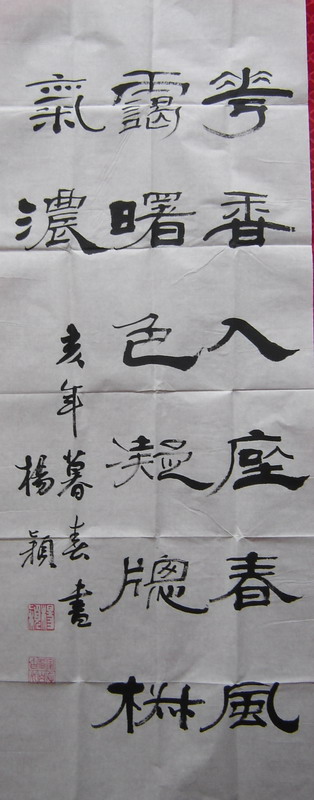 華香入座春風
靄曙色凝牕
氣濃
亥年暮春書
楊穎